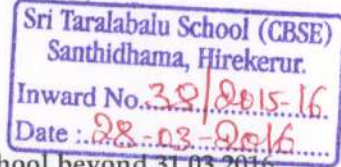 Sri Taralabalu School (CBSE)
Santhidhama, Hirekerur.
Inward No. 38/2015-16
Date : 28-03-2016
hool beyond 31.03.2016